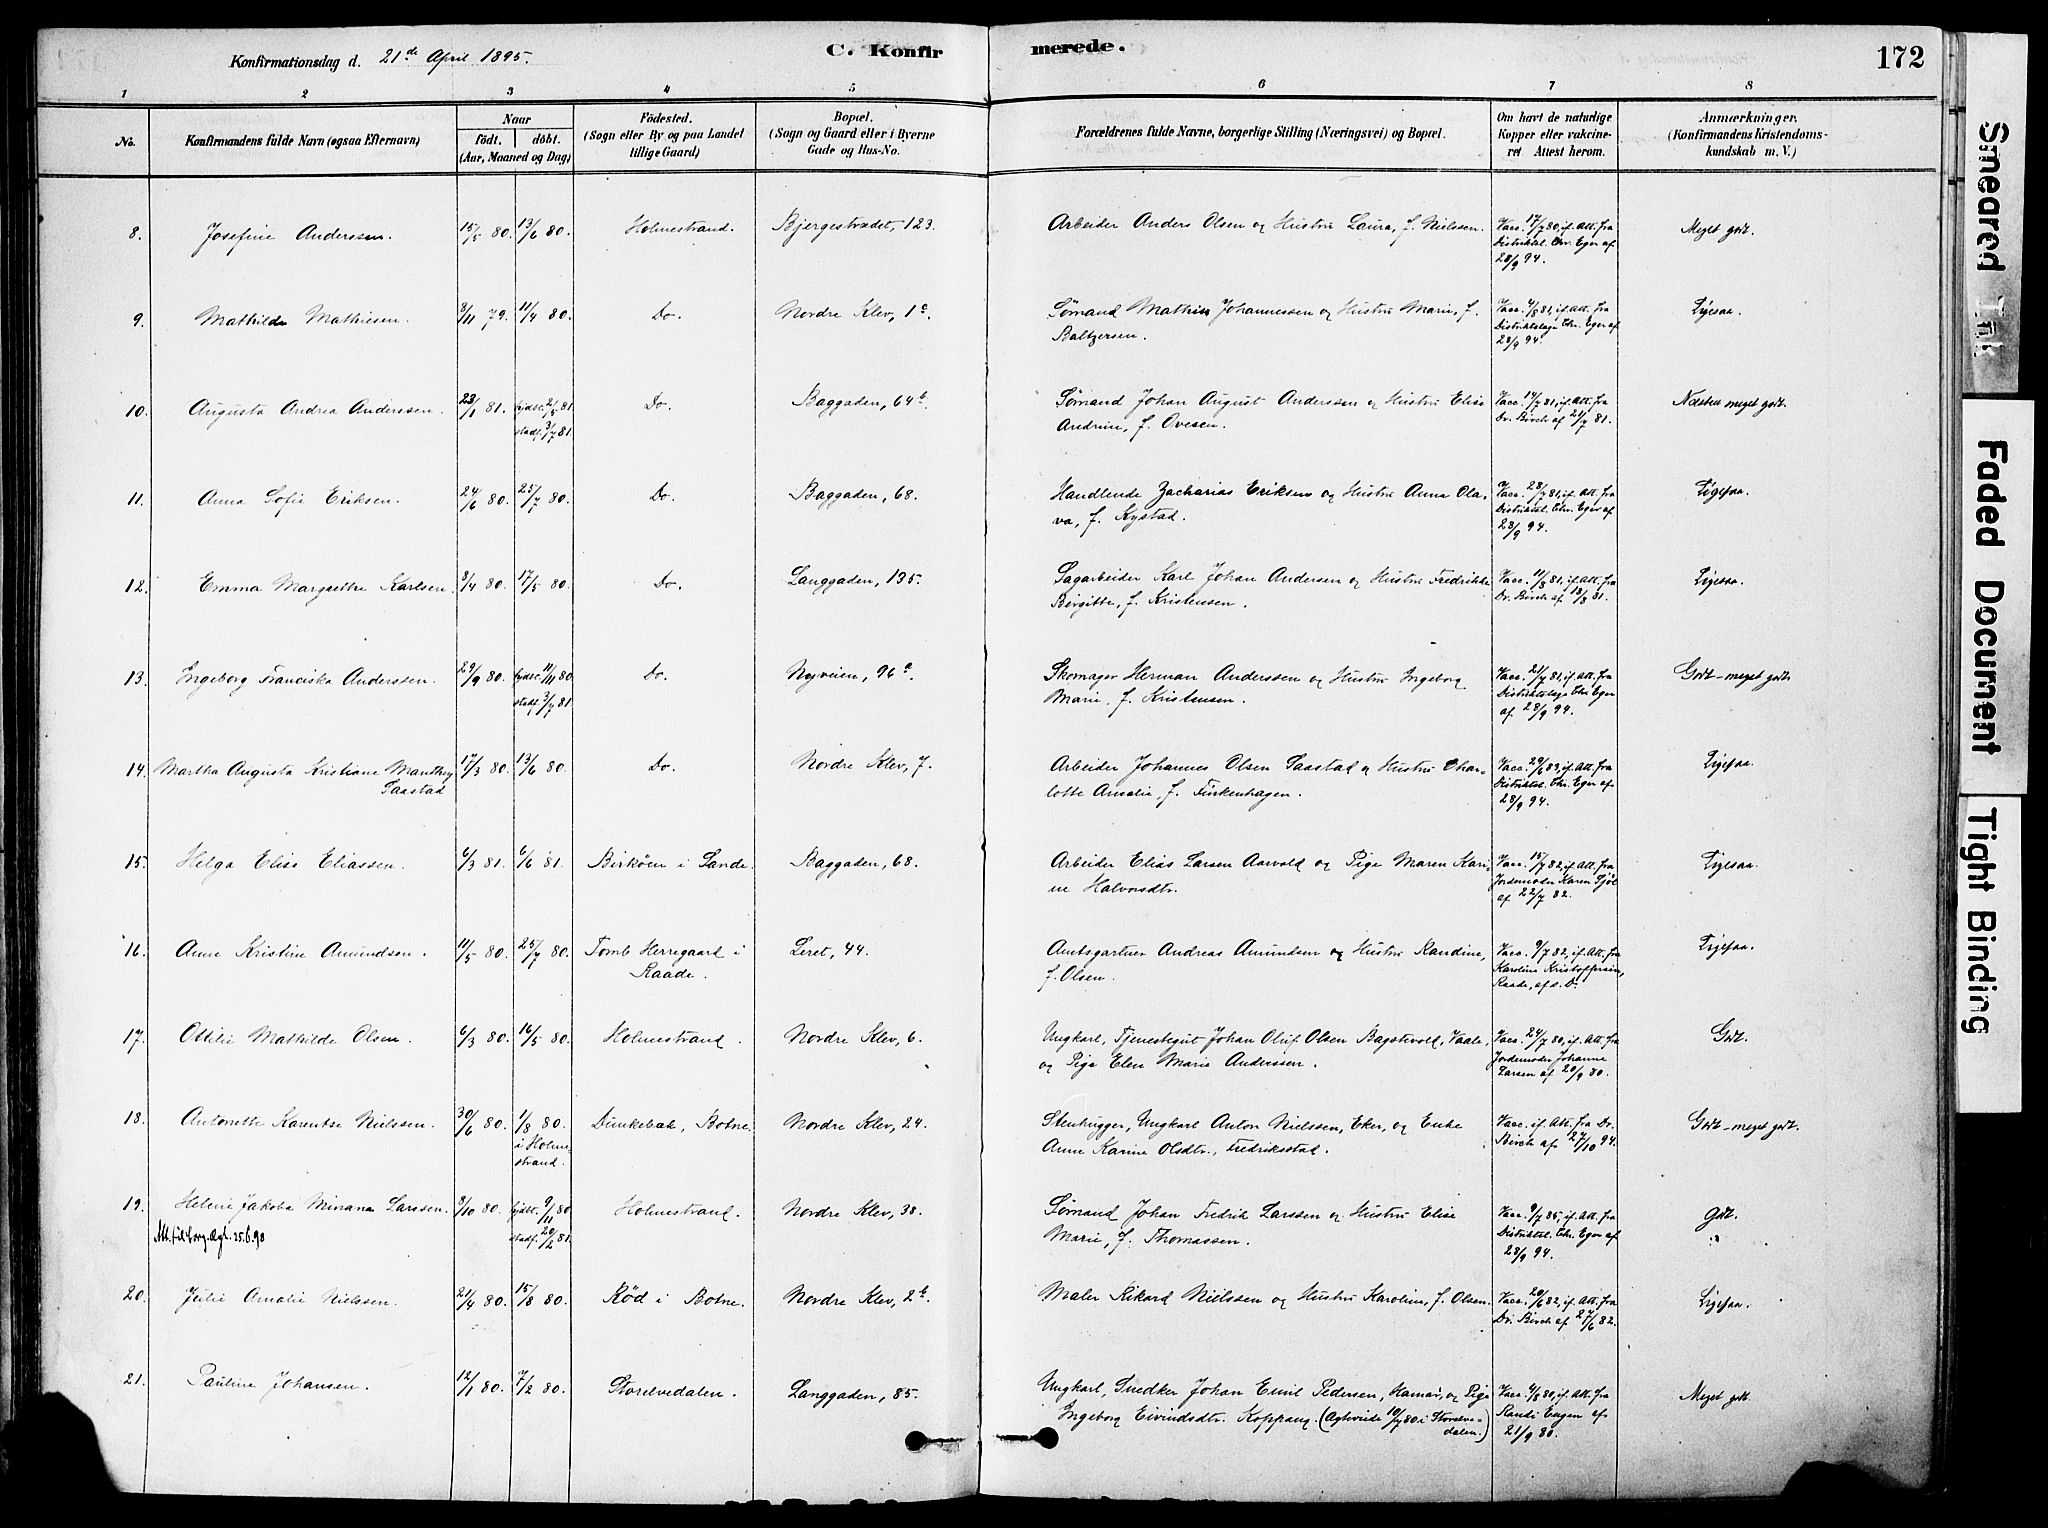 Konfirmationsdag d. 21de April 1895.
C. Konfirmerede.
172
1 2 3 4 5 6 7 8
No.
Konfirmandens fulde Navn (ogsaa Efternavn)
Naar
födt. döbt.
(Aar, Maaned og Dag)
Födested.
(Sogn eller By og paa Landet
tillige Gaard)
Bopæl.
(Sogn og Gaard eller i Byerne
Gade og Hus-No.
Forældrenes fulde Navne, borgerlige Stilling (Næringsvei) og Bopæl.
Om havt de naturlige
Kopper eller vakcine-
ret. Attest herom.
Anmærkninger.
(Konfirmandens Kristendoms-
kundskab m. V.)
8. Josefine Anderssen. 15/5 80. 13/6 80. Holmestrand. Bjergestrædet, 123. Arbeider Anders Olsen og Hustru Laura, f. Nielssen. Vacc. 17/7 80, if. Att. fra Meget godt.
Distriktsl. Chr. Eger af
28/9 94.
9. Mathilde Mathiesen. 3/11 79. 11/4 80. Do. Nordre Klev, 1a. Sømand Mathias Johannessen og Hustru Marie, f. Vacc. 4/8 81, if. Att. fra Ligesaa.
Baltzersen. Distriktslæge Chr. Eger af
28/9 94.
10. Augusta Andrea Anderssen. 23/1 81. hjdbt. 2/5 81. Do. Baggaden, 64b. Sømand Johan August Anderssen og Hustru Elise Vacc. 14/7 81, if. Att. fra Næsten meget godt.
stadf. 3/7 81. Andrine, f. Ovesen. Dr. Birch af 21/7 81.
11. Anna Sofie Eriksen. 24/6 80. 25/7 80. Do. Baggaden, 68. Handlende Zacharias Eriksen og Hustru Anna Ola- Vacc. 28/7 81, if. Att. fra Ligesaa.
va, f. Kystad. Distriktsl. Chr. Eger af
28/9 94.
12. Emma Margrethe Karlsen. 3/4 80. 17/5 80. Do. Langgaden, 135. Sagarbeider Karl Johan Andersen og Hustru Fredrikke Vacc. 11/8 81, if. Att. fra Ligesaa.
Birgitte, f. Kristensen. Dr. Birch af 18/8 81.
13. Ingeborg Franciska Anderssen. 29/9 80. hjdbt. 11/11 80. Do. Nyveien, 96a. Skomager Herman Anderssen og Hustru Ingeborg Vacc. 21/7 81, if. Att. fra Godt - meget godt.
stadf. 3/7 81. Marie, f. Kristensen. Distriktslæge Chr. Eger
af 28/9 94.
14. Martha Augusta Kristiane Manthey 17/3 80. 13/6 80. Do. Nordre Klev, 7. Arbeider Johannes Olsen Saastad og Hustru Char- Vacc. 29/6 83, if. Att. fra Ligesaa.
Saastad lotte Amalie, f. Finkenhagen. Distriktsl. Chr. Eger af
28/9 94.
15. Helga Elise Eliassen. 6/3 81. 6/6 81. Birköen i Sande. Baggaden, 68. Arbeider Elias Larsen Aarvold og Pige Maren Kari- Vacc. 15/7 82, if. Att. fra Ligesaa.
ne Halvorsdtr. Jordemoder Karen Sjöl
af 22/7 82.
16. Anne Kristine Amundsen. 11/5 80. 25/7 80. Tomb Herregaard i Leret, 44. Amtsgartner Andreas Amundsen og Hustru Randine, Vacc. 9/7 82, if. Att. fra Ligesaa.
Raade. f. Olsen. Karoline Kristoffersen,
Raade, af s. D.
17. Ottilie Mathilde Olsen. 6/3 80. 16/5 80. Holmestrand. Nordre Klev, 6. Ungkarl, Tjenestegut Johan Oluf Olsen Bagstevold, Vaale, Vacc. 24/7 80, if. Att. fra Godt.
og Pige Elen Marie Anderssen. Jordemoder Johanne
Larsen af 20/9 80.
18. Antonette Karentse Nielssen. 30/6 80. 1/8 80. Dunkebak, Botne. Nordre Klev, 24. Stenhugger, Ungkarl Anton Nielssen, Eker, og Enke Vacc. if. Att. fra Dr. Godt - meget godt.
i Holme- Anne Karine Olsdtr., Fredriksstad. Birch af 27/10 94.
strand.
19. Helene Jakoba Minana Larssen. 3/10 80. hjdbt. 9/11 80. Holmestrand. Nordre Klev, 38. Sømand Johan Fredrik Larssen og Hustru Elise Vacc. 9/7 85, if. Att. fra Godt.
Att. til borg. vgl. 25.6.98 stadf. 20/2 81. Marie, f. Thomassen. Distriktsl. Chr. Eger af
28/9 94.
20. Julie Amalie Nielssen. 21/4 80. 15/8 80. Röd i Botne. Nordre Klev, 2b. Maler Rikard Nielssen og Hustru Karoline, f. Olsen. Vacc. 20/6 82, if. Att. fra Ligesaa.
Dr. Birch af 27/6 82.
21. Pauline Johansen. 12/1 80. 7/2 80. Storelvedalen. Langgaden, 85. Ungkarl, Snedker Johan Emil Pedersen, Hamar, og Pige Vacc. 4/8 80, if. Att. fra Meget godt
Ingeborg Eivindsdtr. Koppang. (Ægteviede 10/7 80 i Storelve- Randi Engen af
dalen.) 21/9 80.
Smeared Ink
Faded Document
Tight Binding